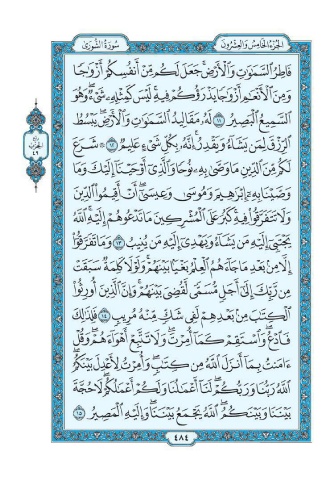 الجزء الخامس والعشرون
سورة الشورى
فَاطِرُ السَّمَٰوَٰتِ وَالْأَرْضِ جَعَلَ لَكُم مِّنْ أَنفُسِكُمْ أَزْوَٰجًا
وَمِنَ الْأَنْعَٰمِ أَزْوَٰجًا يَذْرَؤُكُمْ فِيهِ لَيْسَ كَمِثْلِهِ شَىْءٌ وَهُوَ
السَّمِيعُ الْبَصِيرُ ١١ لَهُ مَقَالِيدُ السَّمَٰوَٰتِ وَالْأَرْضِ يَبْسُطُ
الرِّزْقَ لِمَن يَشَاءُ وَيَقْدِرُ إِنَّهُ بِكُلِّ شَىْءٍ عَلِيمٌ ١٢ شَرَعَ
لَكُم مِّنَ الدِّينِ مَا وَصَّىٰ بِهِ نُوحًا وَالَّذِى أَوْحَيْنَا إِلَيْكَ وَمَا
وَصَّيْنَا بِهِ إِبْرَٰهِيمَ وَمُوسَىٰ وَعِيسَىٰ أَنْ أَقِيمُوا الدِّينَ
وَلَا تَتَفَرَّقُوا فِيهِ كَبُرَ عَلَى الْمُشْرِكِينَ مَا تَدْعُوهُمْ إِلَيْهِ اللَّهُ
يَجْتَبِى إِلَيْهِ مَن يَشَاءُ وَيَهْدِى إِلَيْهِ مَن يُنِيبُ ١٣ وَمَا تَفَرَّقُوا
إِلَّا مِن بَعْدِ مَا جَاءَهُمُ الْعِلْمُ بَغْيًا بَيْنَهُمْ وَلَوْلَا كَلِمَةٌ سَبَقَتْ
مِن رَّبِّكَ إِلَىٰ أَجَلٍ مُّسَمًّى لَّقُضِىَ بَيْنَهُمْ وَإِنَّ الَّذِينَ أُورِثُوا
الْكِتَٰبَ مِن بَعْدِهِمْ لَفِى شَكٍّ مِّنْهُ مُرِيبٍ ١٤ فَلِذَٰلِكَ
فَادْعُ وَاسْتَقِمْ كَمَا أُمِرْتَ وَلَا تَتَّبِعْ أَهْوَاءَهُمْ وَقُلْ
ءَامَنتُ بِمَا أَنزَلَ اللَّهُ مِن كِتَٰبٍ وَأُمِرْتُ لِأَعْدِلَ بَيْنَكُمُ
اللَّهُ رَبُّنَا وَرَبُّكُمْ لَنَا أَعْمَٰلُنَا وَلَكُمْ أَعْمَٰلُكُمْ لَا حُجَّةَ
بَيْنَنَا وَبَيْنَكُمُ اللَّهُ يَجْمَعُ بَيْنَنَا وَإِلَيْهِ الْمَصِيرُ ١٥
٤٨٤